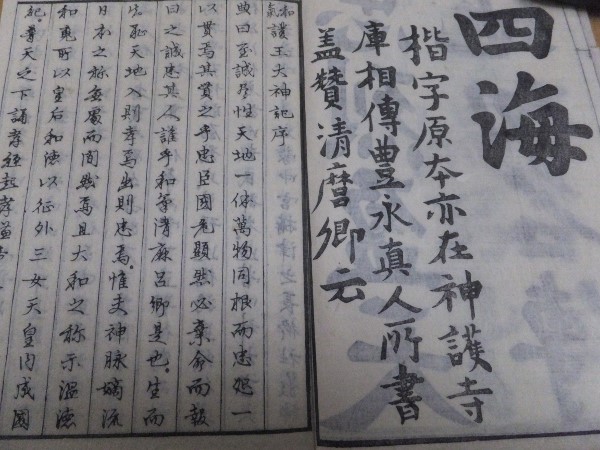 四海
楷字原本亦在神護寺
庫相傳豊永真人所書
蓋賛清麿卿元
和氣護王大神記序
典曰至誠乃性天地一体萬物同根而忠恕一
以貫焉其貫之乎忠臣國危顯然必棄命而報
曰之誠忠其人誰乎和氣清麻呂卿是也生而
天地入則孝焉出則忠焉惟夫神脉嫡流
日本之称而固然焉且大和之称示温德
和所以皇后和德以征外三女天皇内威國
紀尊天之下誦孝經起孝